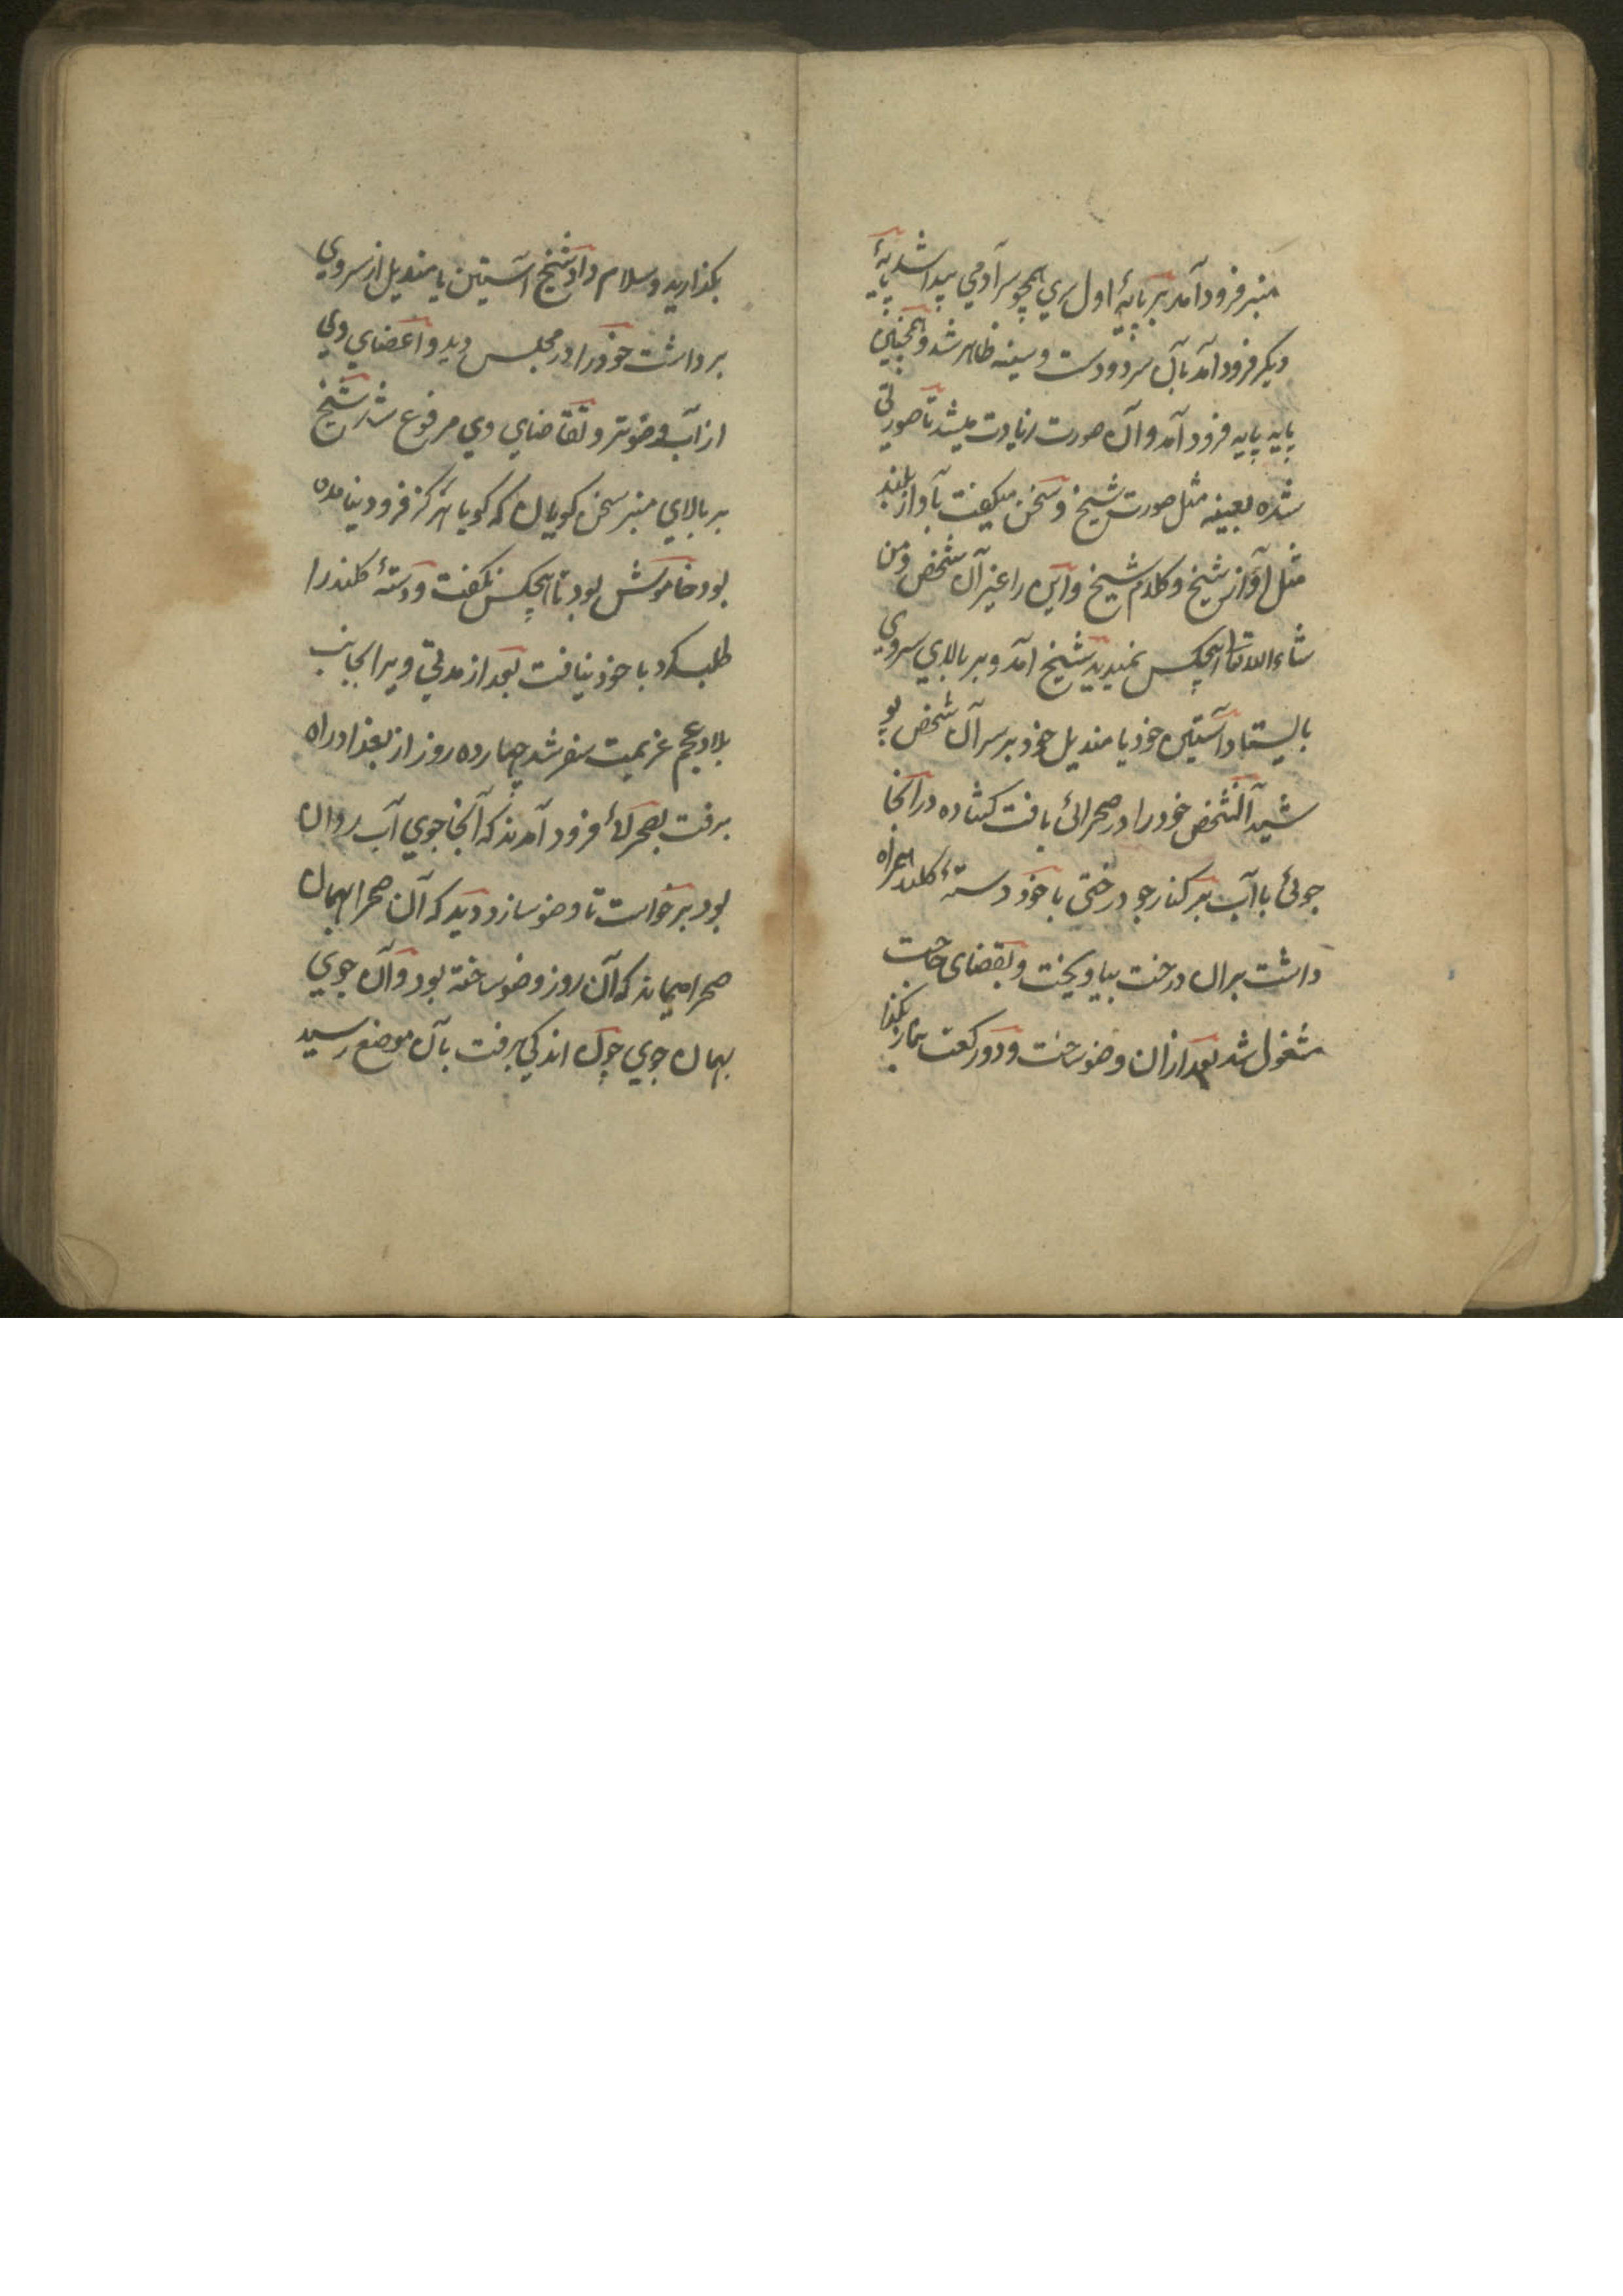 منبر فرود آمد بر پایهٔ اول سري همچو سر آدمي پیدا شد پایهٔ
دیکر فرود آمد بآن سر دو دست و سینه ظاهر شد و همچنین
پایه پایه فرود آمد و آن صورت زیادت میشد تا صورتی
شده بعینه مثل صورت شیخ و سخن میکفت بآواز بلند
مثل آواز شیخ و کلام شیخ و این را غیر آن شخص و من
شاء الله تعا هیچکس نمیدید شیخ آمد و بر بالای سر وي
بایستاد و آستین خود یا مندیل خود بر سر آن شخص پو
شید آنشخص خود را در صحرائی یافت کشاده در آنجا
جوئی با آب بر کنار جو درختی با خود دستهٔ کلید همراه
داشت بر آن درخت بیاویخت و بقضای حاجت
مشغول شد بعد ازان وضو ساخت و دو رکعت نماز بکذا
بکذارید و سلام داد شیخ آستین یا مندیل از سر وي
برداشت خود را در مجلس دید و اعضاي وي
از آب وضو تر و تقاضاي وي مرفوع شد شیخ
بر بالاي منبر سخن کویان که کویا هرکز فرود نیامده
بود خاموش بود با هیچکس نکفت و دستهٔ کلید را
طلب کرد با خود نیافت بعد از مدتي ویرا بجانب
بلاد عجم عزیمت سفر شد چهارده روز از بغداد راه
برفت بصحرائی فرود آمدند که آنجا جوي آب روان
بود برخواست تا وضو سازد دید که آن صحرا بهمان
صحرا میماند که آن روز وضو ساخته بود و آن جوي
بهمان جوي چون اندکي برفت بآن موضع رسید